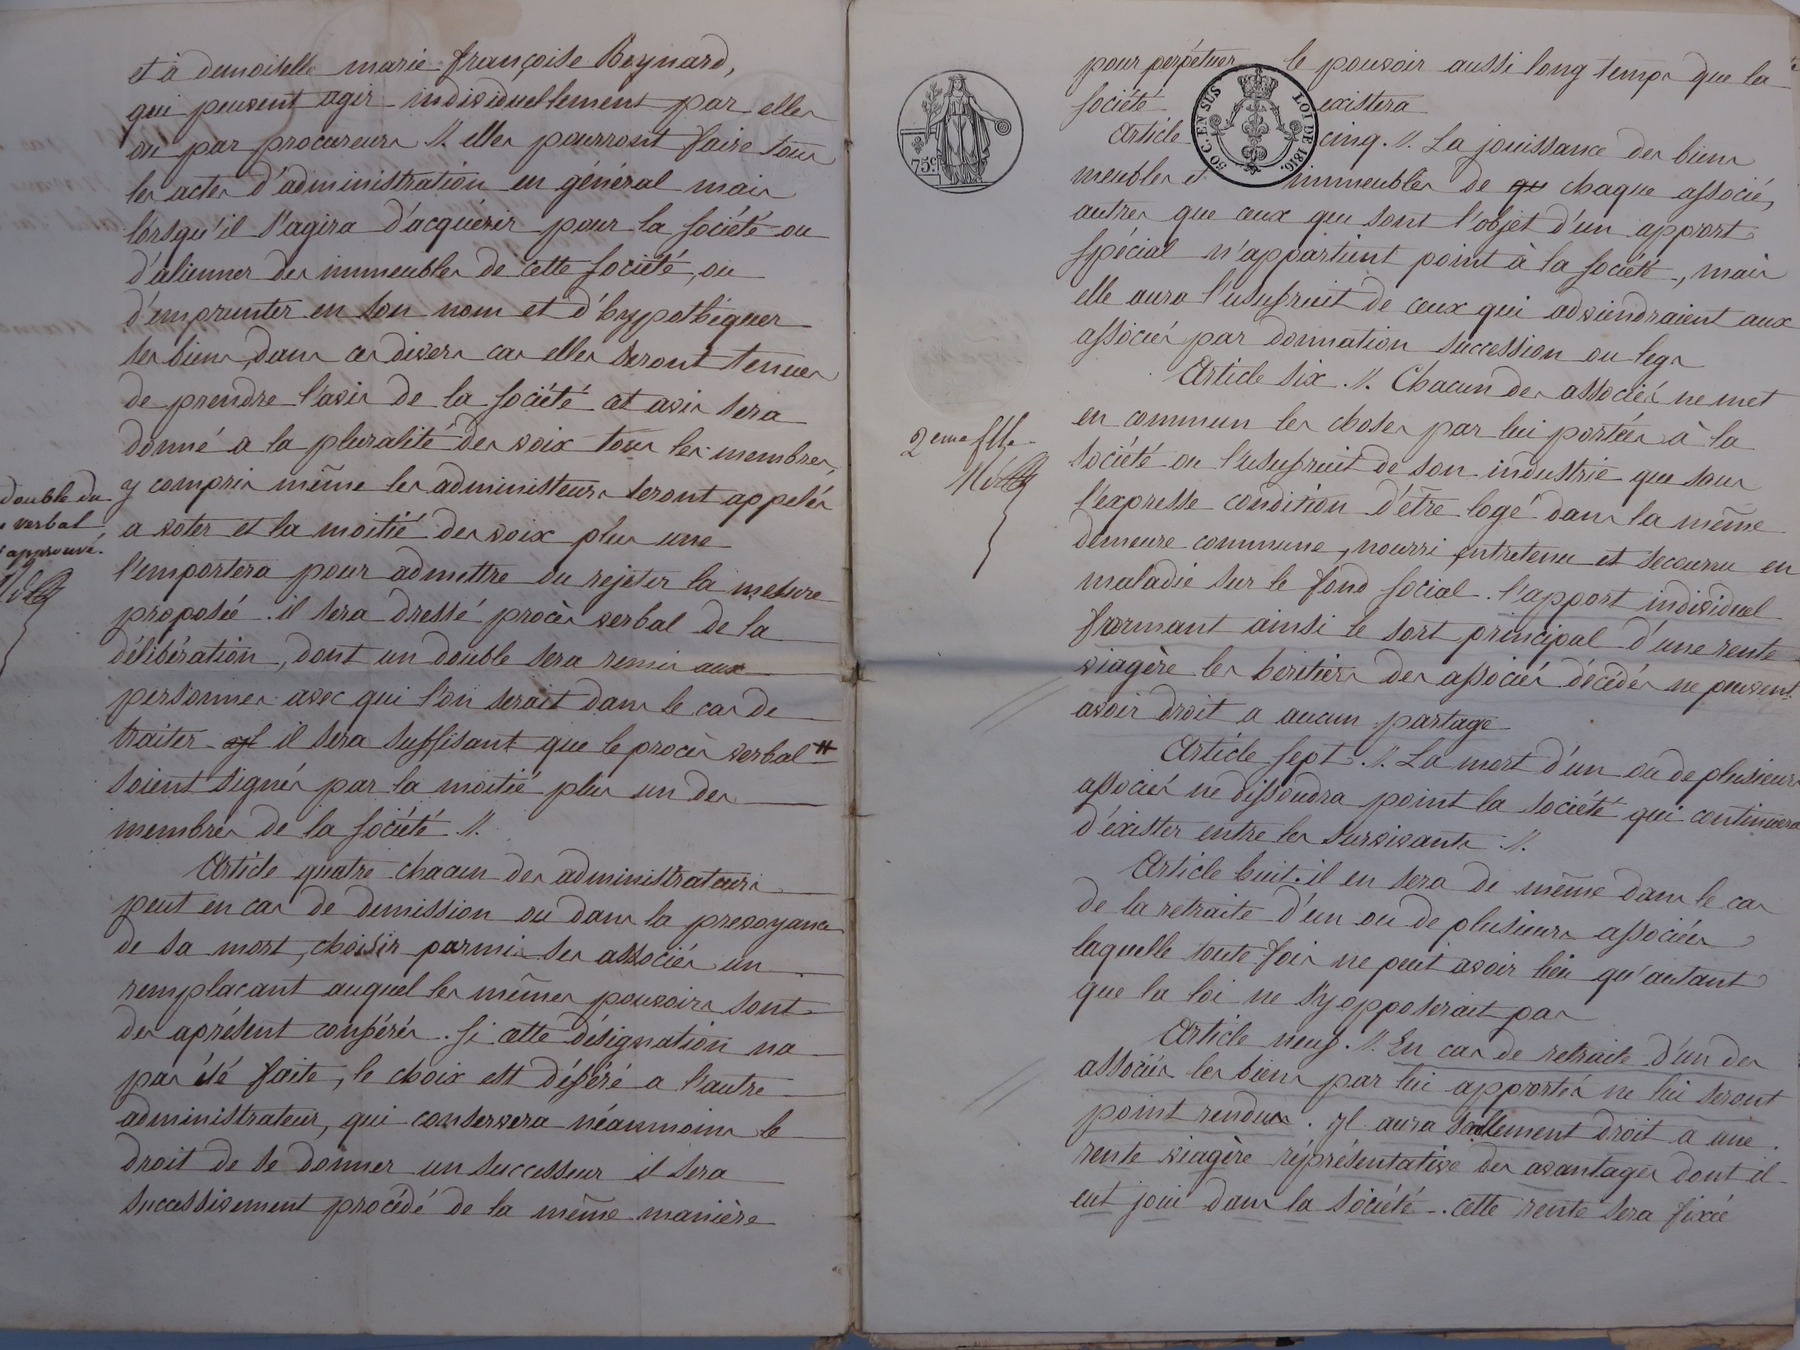 et à demoiselle marie françoise Reynard,
qui peuvent agir individuellement par elles
ou par procureurs //. elles pourront faire tous
les actes d'administration en général mais
lorsqu'il s'agira d'acquérir pour la société ou
d'alienner des immeubles de cette société, ou
d'emprunter en son nom et d'hypothéquer
ses biens, dans ces divers cas elles seront tenues
de prendre l'avis de la société cet avis sera
donné a la pluralité des voix tous les membres,
y compris même les administeurs seront appelés
a voter et la moitié des voix plus une
l'emportera pour admettre ou rejeter la mesure
proposée. il sera dressé procès verbal de la
délibération, dont un double sera remis aux
personnes avec qui l'on serait dans le cas de
traiter il sera suffisant que le procès verbal #
soient signés par la moitié plus un des
membres de la société //.
Article quatre chacun des administrateurs
peut en cas de demission ou dans la prevoyance
de sa mort, choisir parmi ses associés un
remplacant auquel les mêmes pouvoirs sont
des aprésent conférés. Si cette désignation na
pas été faite, le choix est déféré a l'autre
administrateur, qui conservera néanmoins le
droit de se donner un successeur il sera
successivement procédé de la même manière
double du
verbal
approuvé.
75c.
50 C. EN SUS
LOI DE 1816.
2eme flle
pour perpétuer le pouvoir aussi long temps que la
société existera
Article cinq. //. La jouissance des biens
meubles et immeubles de qu chaque associé,
autres que ceux qui sont l'objet d'un apport
spécial n'appartient point à la société, mais
elle aura l'usufruit de ceux qui adviendraient aux
associés par donnation succession ou legs
Article six. //. Chacun des associés ne met
en commun les choses par lui portées à la
société ou l'usufruit de son industrie que sous
l'expresse condition d'être logé dans la même
demeure commune, nourri entretenu et secouru en
maladie sur le fond social. l'apport individuel
formant ainsi le sort principal d'une rente
viagère les héritiers des associés décédés ne peuvent
avoir droit a aucun partage
Article sept. //. La mort d'un ou de plusieurs
associés ne dissoudra point la société qui continuera
d'éxister entre les survivants //.
Article huit. il en sera de même dans le cas
de la retraite d'un ou de plusieurs associés
laquelle toute fois ne peut avoir lieu qu'autant
que la loi ne s'y opposerait pas
Article neuf. //. En cas de retraite d'un des
associés les biens par lui apportés ne lui seront
point rendus. il aura seulement droit a une
rente viagère réprésentative des avantages dont il
eut joui dans la société. cette rente sera fixée